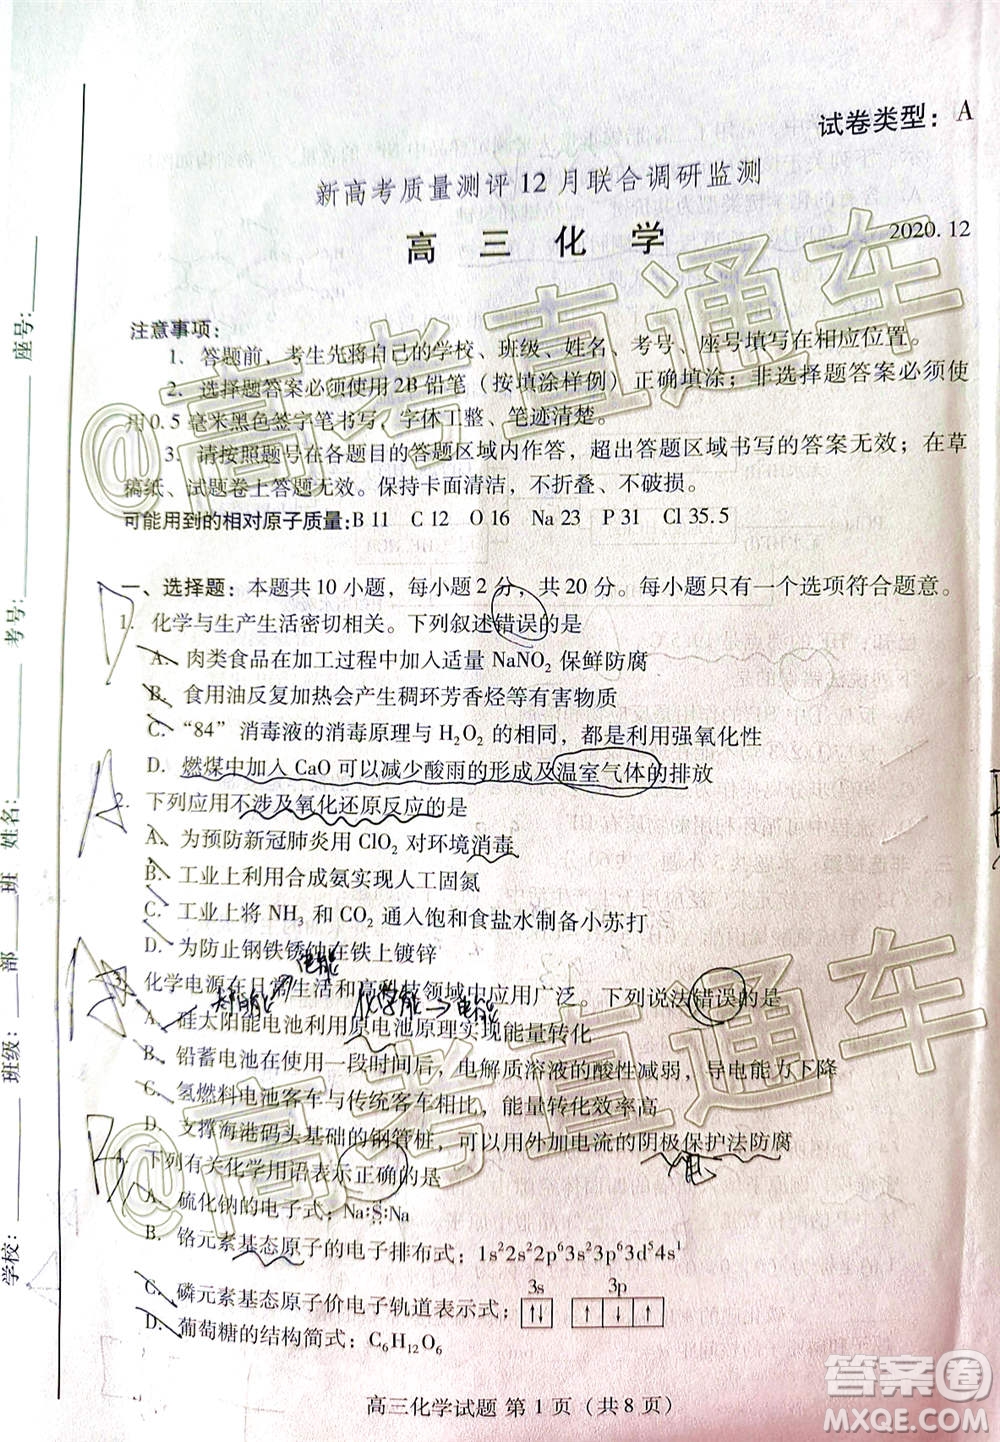 试卷类型：A
新高考质量测评12月联合调研监测
高三化学
2020.12
注意事项：
1. 答题前，考生先将自己的学校、班级、姓名、考号、座号填写在相应位置。
2. 选择题答案必须使用2B铅笔（按填涂样例）正确填涂；非选择题答案必须使
用0.5毫米黑色签字笔书写，字体工整、笔迹清楚。
3. 请按照题号在各题目的答题区域内作答，超出答题区域书写的答案无效；在草
稿纸、试题卷上答题无效。保持卡面清洁，不折叠、不破损。
可能用到的相对原子质量：B 11 C 12 O 16 Na 23 P 31 Cl 35.5
一、选择题：本题共10小题，每小题2分，共20分。每小题只有一个选项符合题意。
1. 化学与生产生活密切相关。下列叙述错误的是
A. 肉类食品在加工过程中加入适量NaNO₂保鲜防腐
B. 食用油反复加热会产生稠环芳香烃等有害物质
C. “84”消毒液的消毒原理与H₂O₂的相同，都是利用强氧化性
D. 燃煤中加入CaO可以减少酸雨的形成及温室气体的排放
2. 下列应用不涉及氧化还原反应的是
A. 为预防新冠肺炎用ClO₂对环境消毒
B. 工业上利用合成氨实现人工固氮
C. 工业上将NH₃和CO₂通入饱和食盐水制备小苏打
D. 为防止钢铁锈蚀在铁上镀锌
电能
3. 化学电源在日常生活和高科技领域中应用广泛。下列说法错误的是
太阳能 化学能→电能
A. 硅太阳能电池利用原电池原理实现能量转化
B. 铅蓄电池在使用一段时间后，电解质溶液的酸性减弱，导电能力下降
C. 氢燃料电池客车与传统客车相比，能量转化效率高
D. 支撑海港码头基础的钢管桩，可以用外加电流的阴极保护法防腐
下列有关化学用语表示正确的是
A. 硫化钠的电子式：Na:S:Na
B. 铬元素基态原子的电子排布式：1s²2s²2p⁶3s²3p⁶3d⁵4s¹
3s 3p
C. 磷元素基态原子价电子轨道表示式：↑↓ ↑ ↑ ↑
D. 葡萄糖的结构简式：C₆H₁₂O₆
高三化学试题 第1页（共8页）
学校： 班级： 部 班 姓名： 考号： 座号：
@高考直通车
@高考直通车
答案圈
MXQE.COM